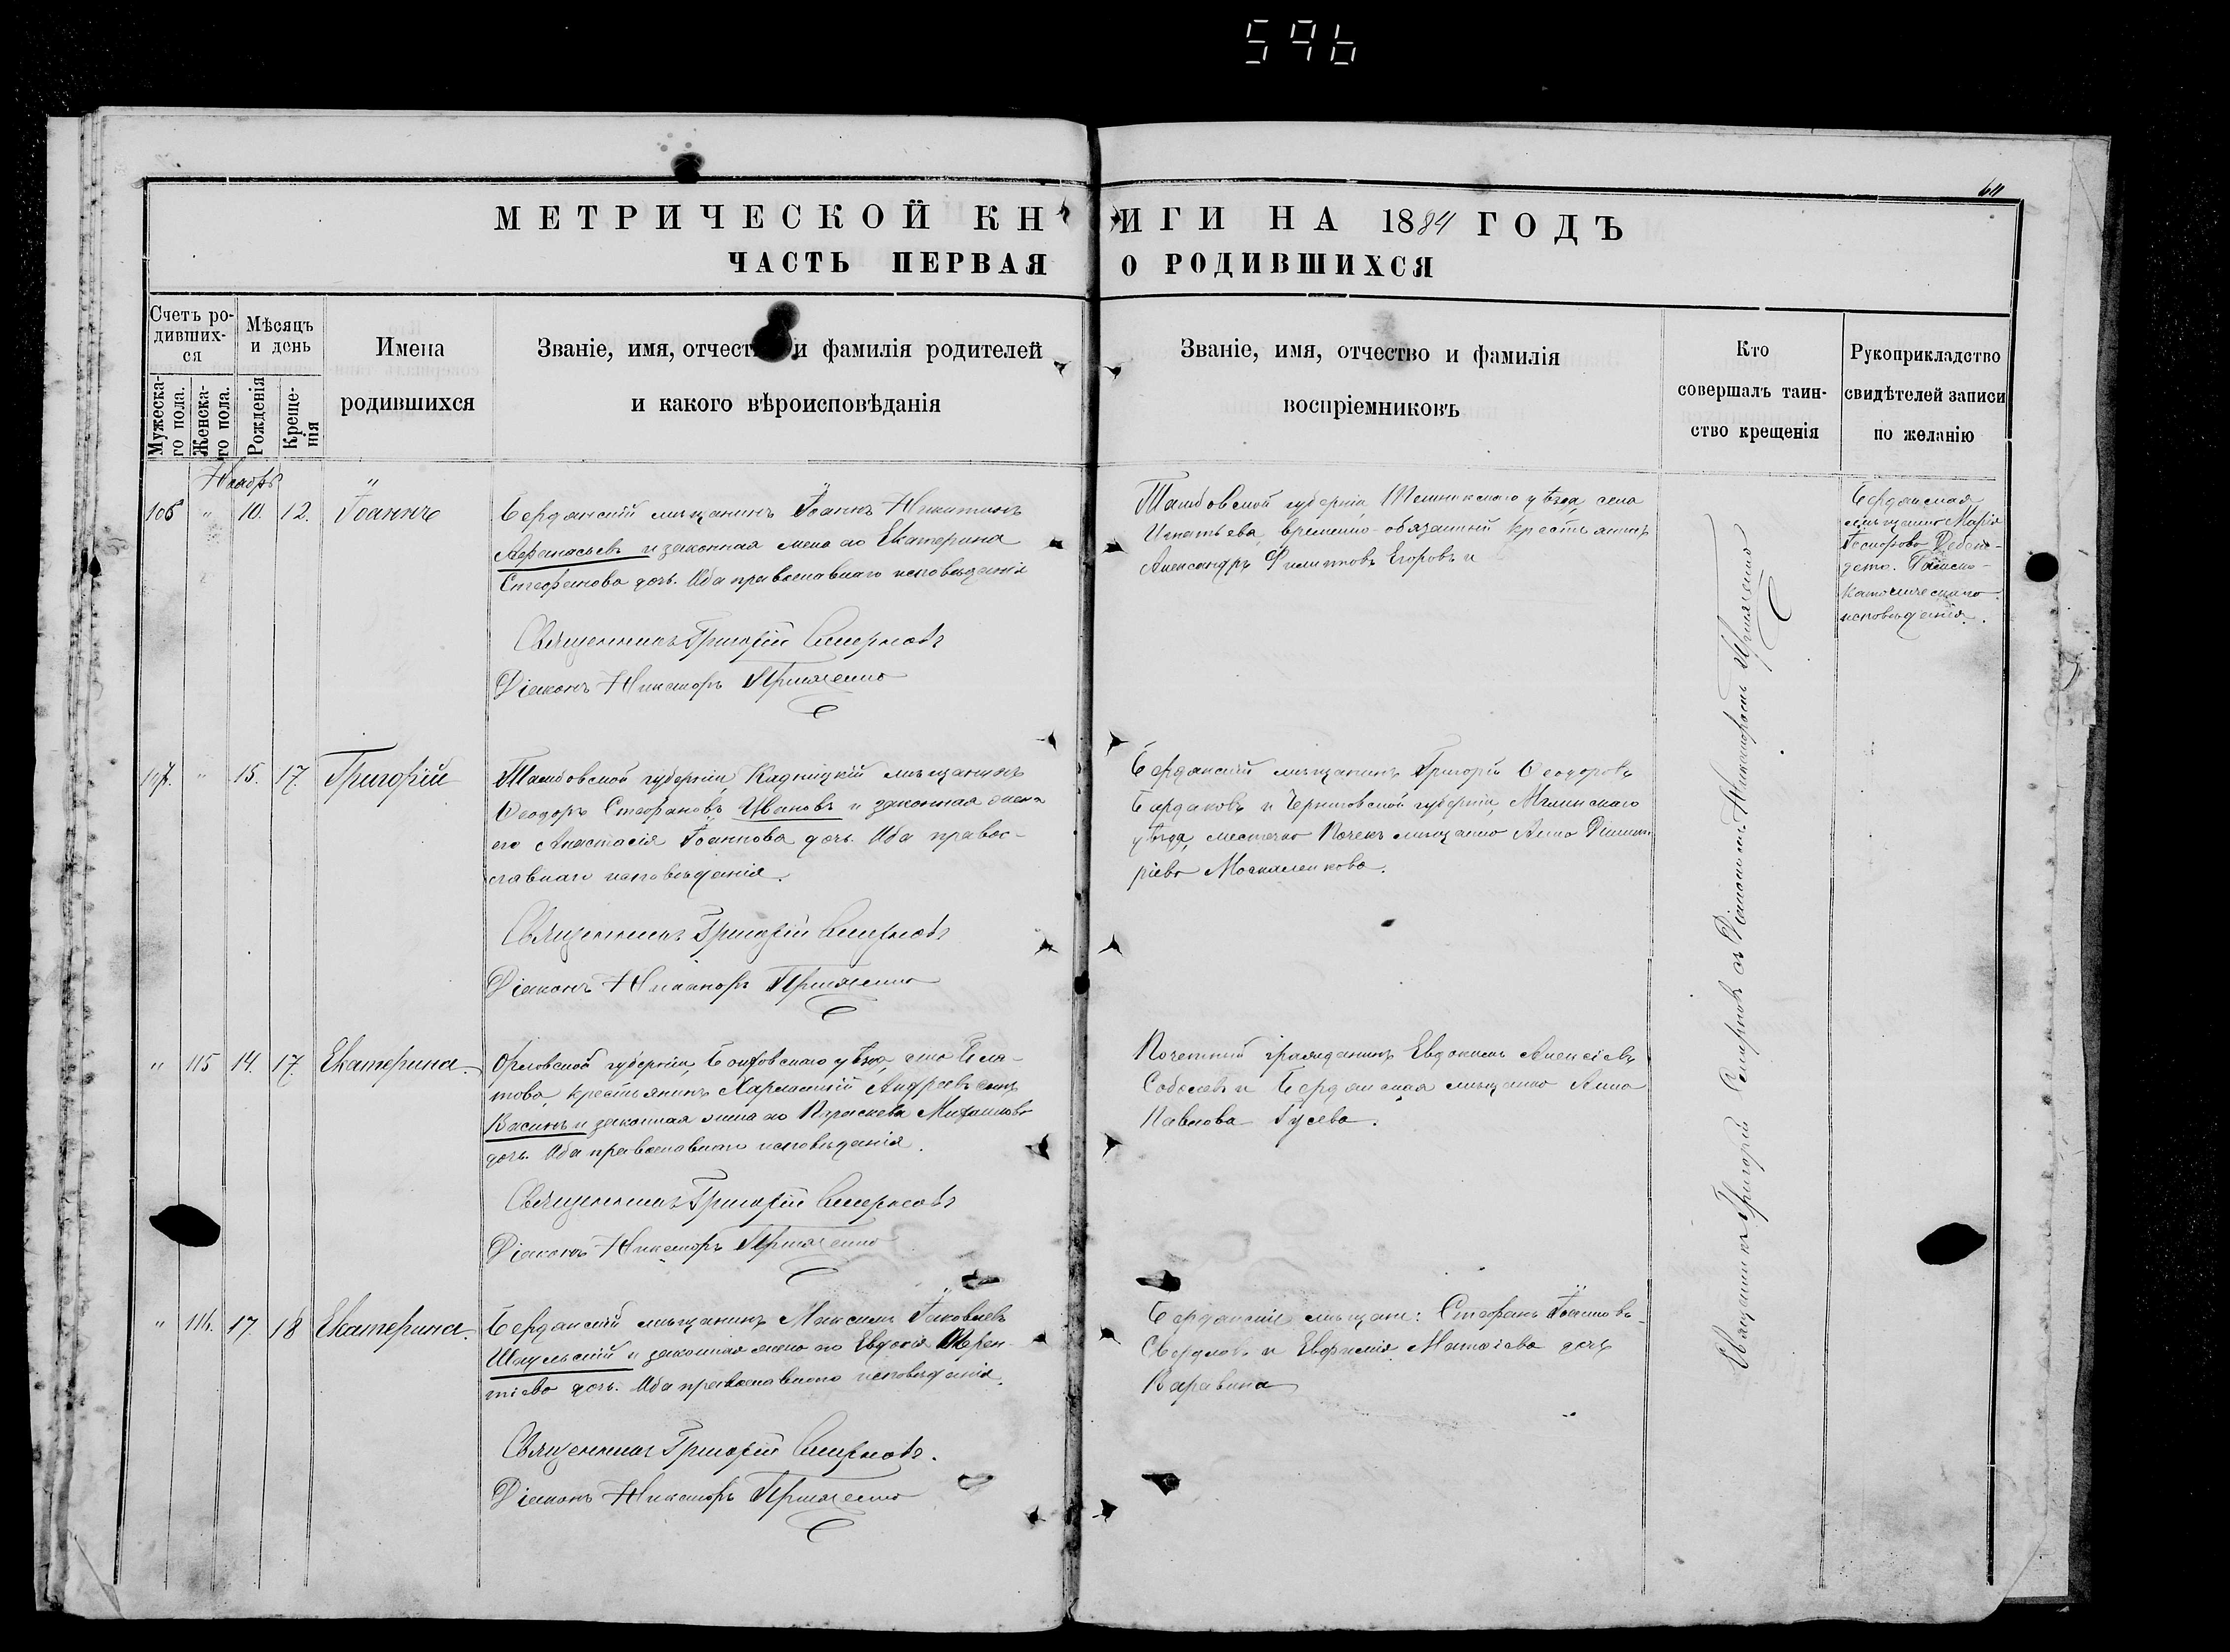 596
64
МЕТРИЧЕСКОЙ КНИГИ НА 1884 ГОДЪ
ЧАСТЬ ПЕРВАЯ О РОДИВШИХСЯ
Счетъ ро-
дивших-
ся
Мужеска-
го пола.
Женска-
го пола.
Мѣсяцъ
и день
Рожденія
Креще-
нія
Имена
родившихся
Званіе, имя, отчество и фамилія родителей
и какого вѣроисповѣданія
Званіе, имя, отчество и фамилія
воспріемниковъ
Кто
совершалъ таин-
ство крещенія
Рукоприкладство
свидѣтелей записи
по желанію
Ноябрь
106 " 10. 12. Іоаннъ
Бердянскій мѣщанинъ Іоаннъ Никитинъ
Афанасьевъ и законная жена его Екатерина
Стефанова дочь. Оба православнаго исповѣданія
Священникъ Григорій Смирновъ
Діаконъ Никаноръ
Тамбовской губерніи, уѣзда, села
временно-обязанный крестьянинъ
Александръ Филипповъ Егоровъ и
Бердянская
мѣщанка Марія
Римско-
Католическаго
исповѣданія.
107. " 15. 17. Григорій
Тамбовской губерніи, мѣщанинъ
Ѳеодоръ Стефановъ Ивановъ и законная жена
его Анастасія Іоаннова дочь. Оба правос-
лавнаго исповѣданія.
Священникъ Григорій Смирновъ
Діаконъ Никаноръ
Бердянскій мѣщанинъ Григорій Ѳеодоровъ
Бардаковъ и Черниговской губерніи, Мглинскаго
уѣзда, местечка Почепъ мѣщанка Анна Димит-
ріева Москаленкова.
" 115 14. 17. Екатерина.
Орловской губерніи, уѣзда, села
крестьянинъ Харлампій Андреевъ
Васинъ и законная жена его Параскева Михаилова
дочь. Оба православнаго исповѣданія.
Священникъ Григорій Смирновъ
Діаконъ Никаноръ
Почетный гражданинъ Евдокимъ Алексіевъ
Соболевъ и Бердянская мѣщанка Анна
Павлова Гусева.
" 116. 17. 18 Екатерина.
Бердянскій мѣщанинъ Максимъ Іаковлевъ
Шаульскій и законная жена его Евдокія Терен-
тіева дочь. Оба православнаго исповѣданія.
Священникъ Григорій Смирновъ.
Діаконъ Никаноръ
Бердянскіе мѣщане: Стефанъ Іоанновъ
Свердловъ и Евфимія Матѳіева дочь
Варавина
Священникъ Григорій Смирновъ съ Діакономъ Никаноромъ